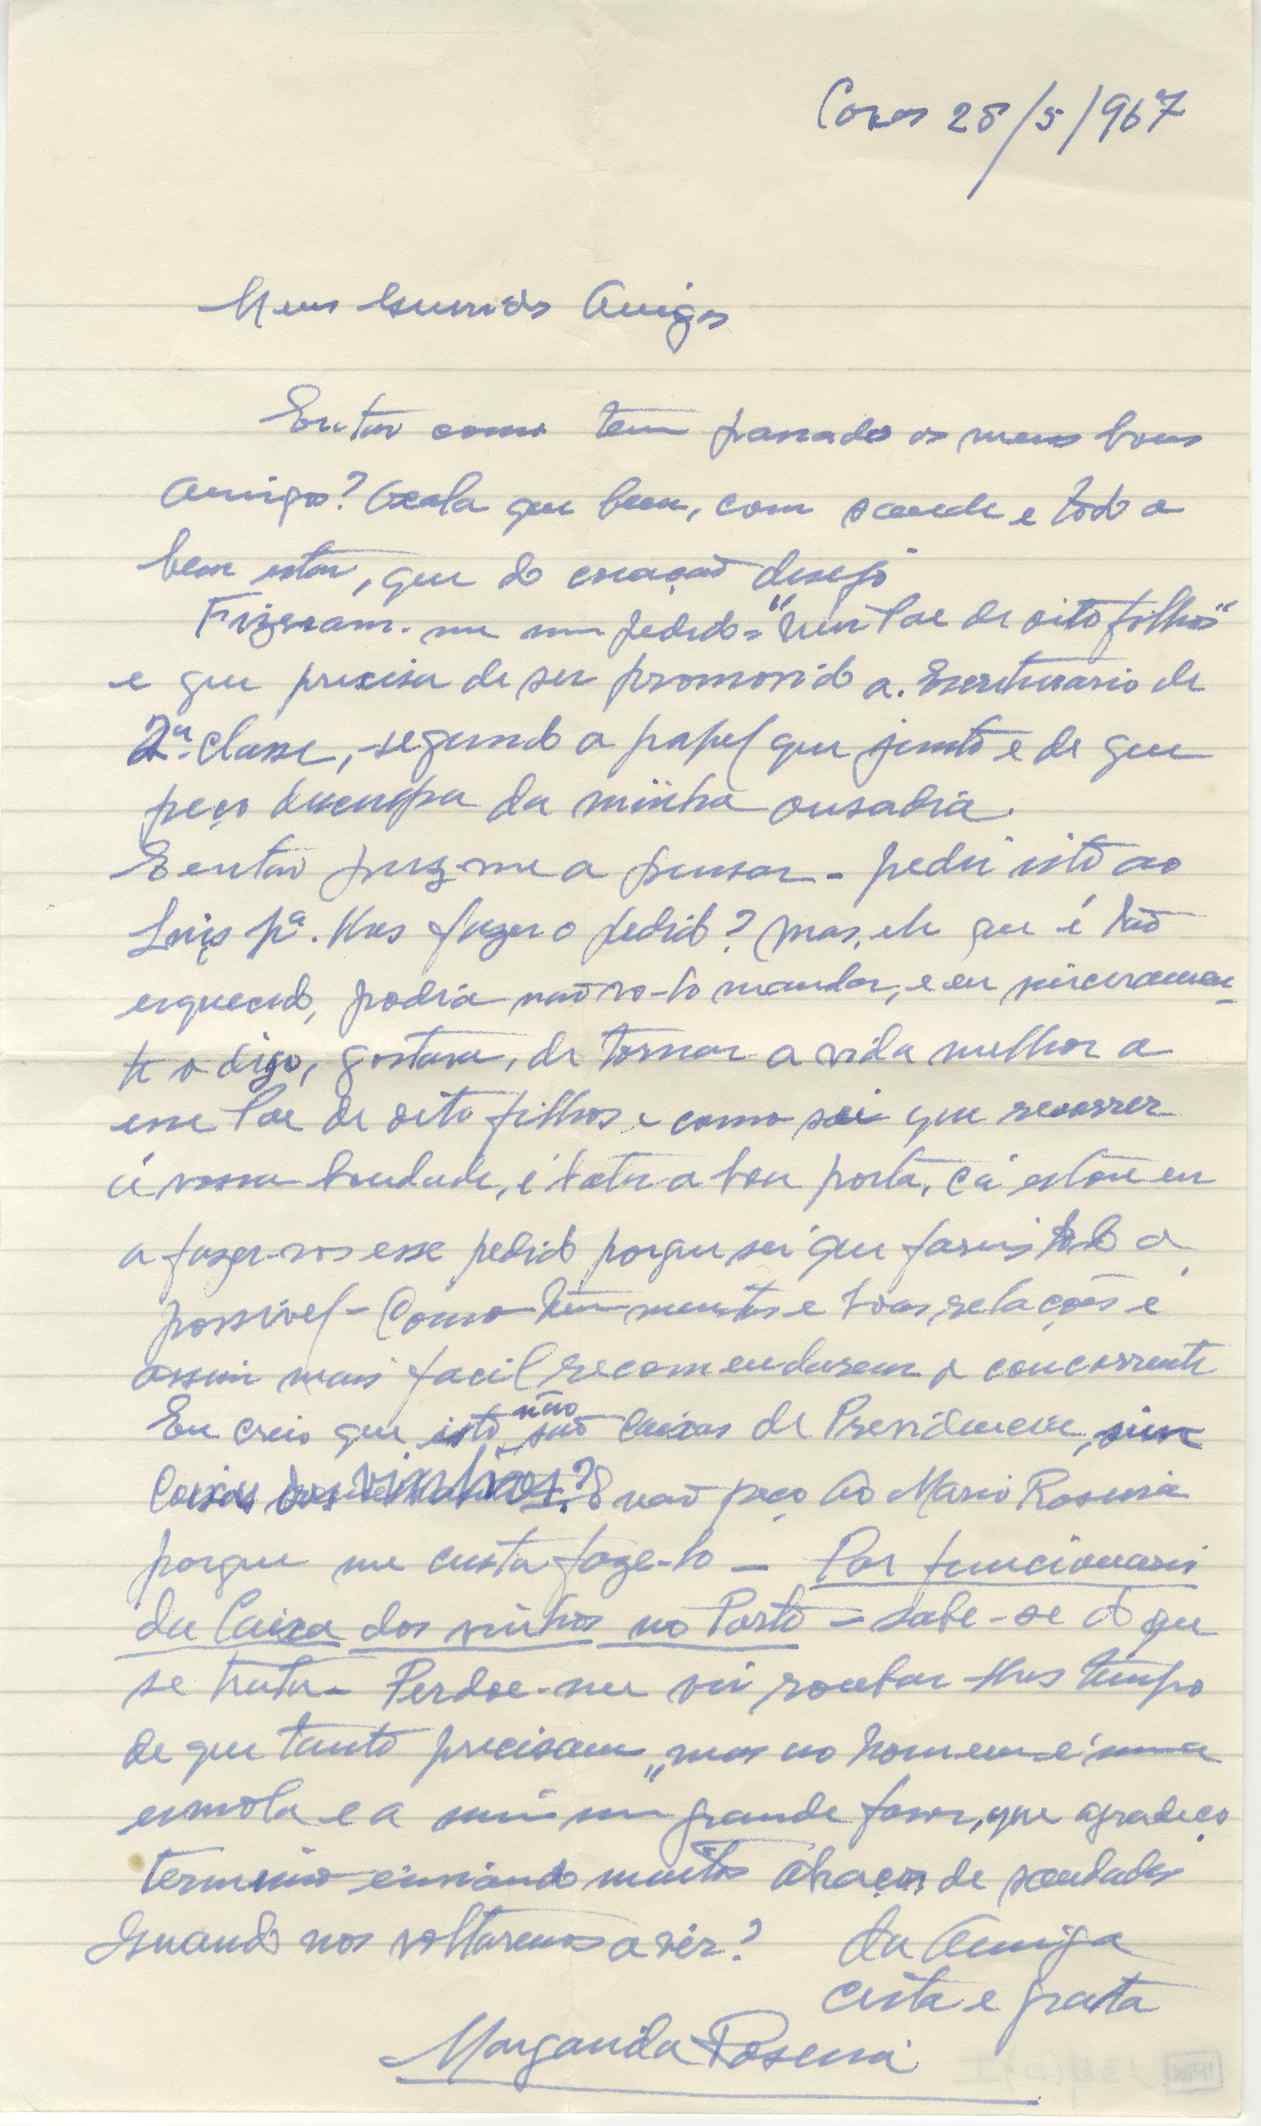 28/5/967
Meus Queridos Amigos
Então como tem passado os meus bons
Amigos? Oxala que bem, com saude e todo o
bem estar, que do coração desejo
Fizeram-me um pedido = "num Pae de oito filhos"
e que precisa de ser promovido a Escriturario de
2ª classe, segundo o papel que junto e de que
peço desculpa da minha ousadia.
E então puz-me a pensar - pedir isto ao
Luiz pª lhes fazer o pedido? mas, ele que é tão
esquecido, podia não vo-lo mandar, e eu sinceramen-
te o digo, gostava, de tornar a vida melhor a
esse Pae de oito filhos e como sei que recorrer
á vossa bondade, é bater a boa porta, cá estou eu
a fazer-vos esse pedido porque sei que fareis todo o
possivel - Como têm muitas e boas relações é
assim mais facil recomendarem o concorrente
Eu creio que isto não são Caixas de Previdencia, sim
Caixas dos vinhos? E não peço ao Mario Rosema
porque me custa faze-lo - Por funcionario
da Caixa dos vinhos no Porto = sabe-se do que
se trata - Perdoe-me vir roubar-lhes tempo
de que tanto precisam, mas ao homem é uma
esmola e a mim um grande favor, que agradeço
termino enviando muitos abraços de saudades
Quando nos voltaremos a vêr? Da Amiga
certa e grata
Margarida